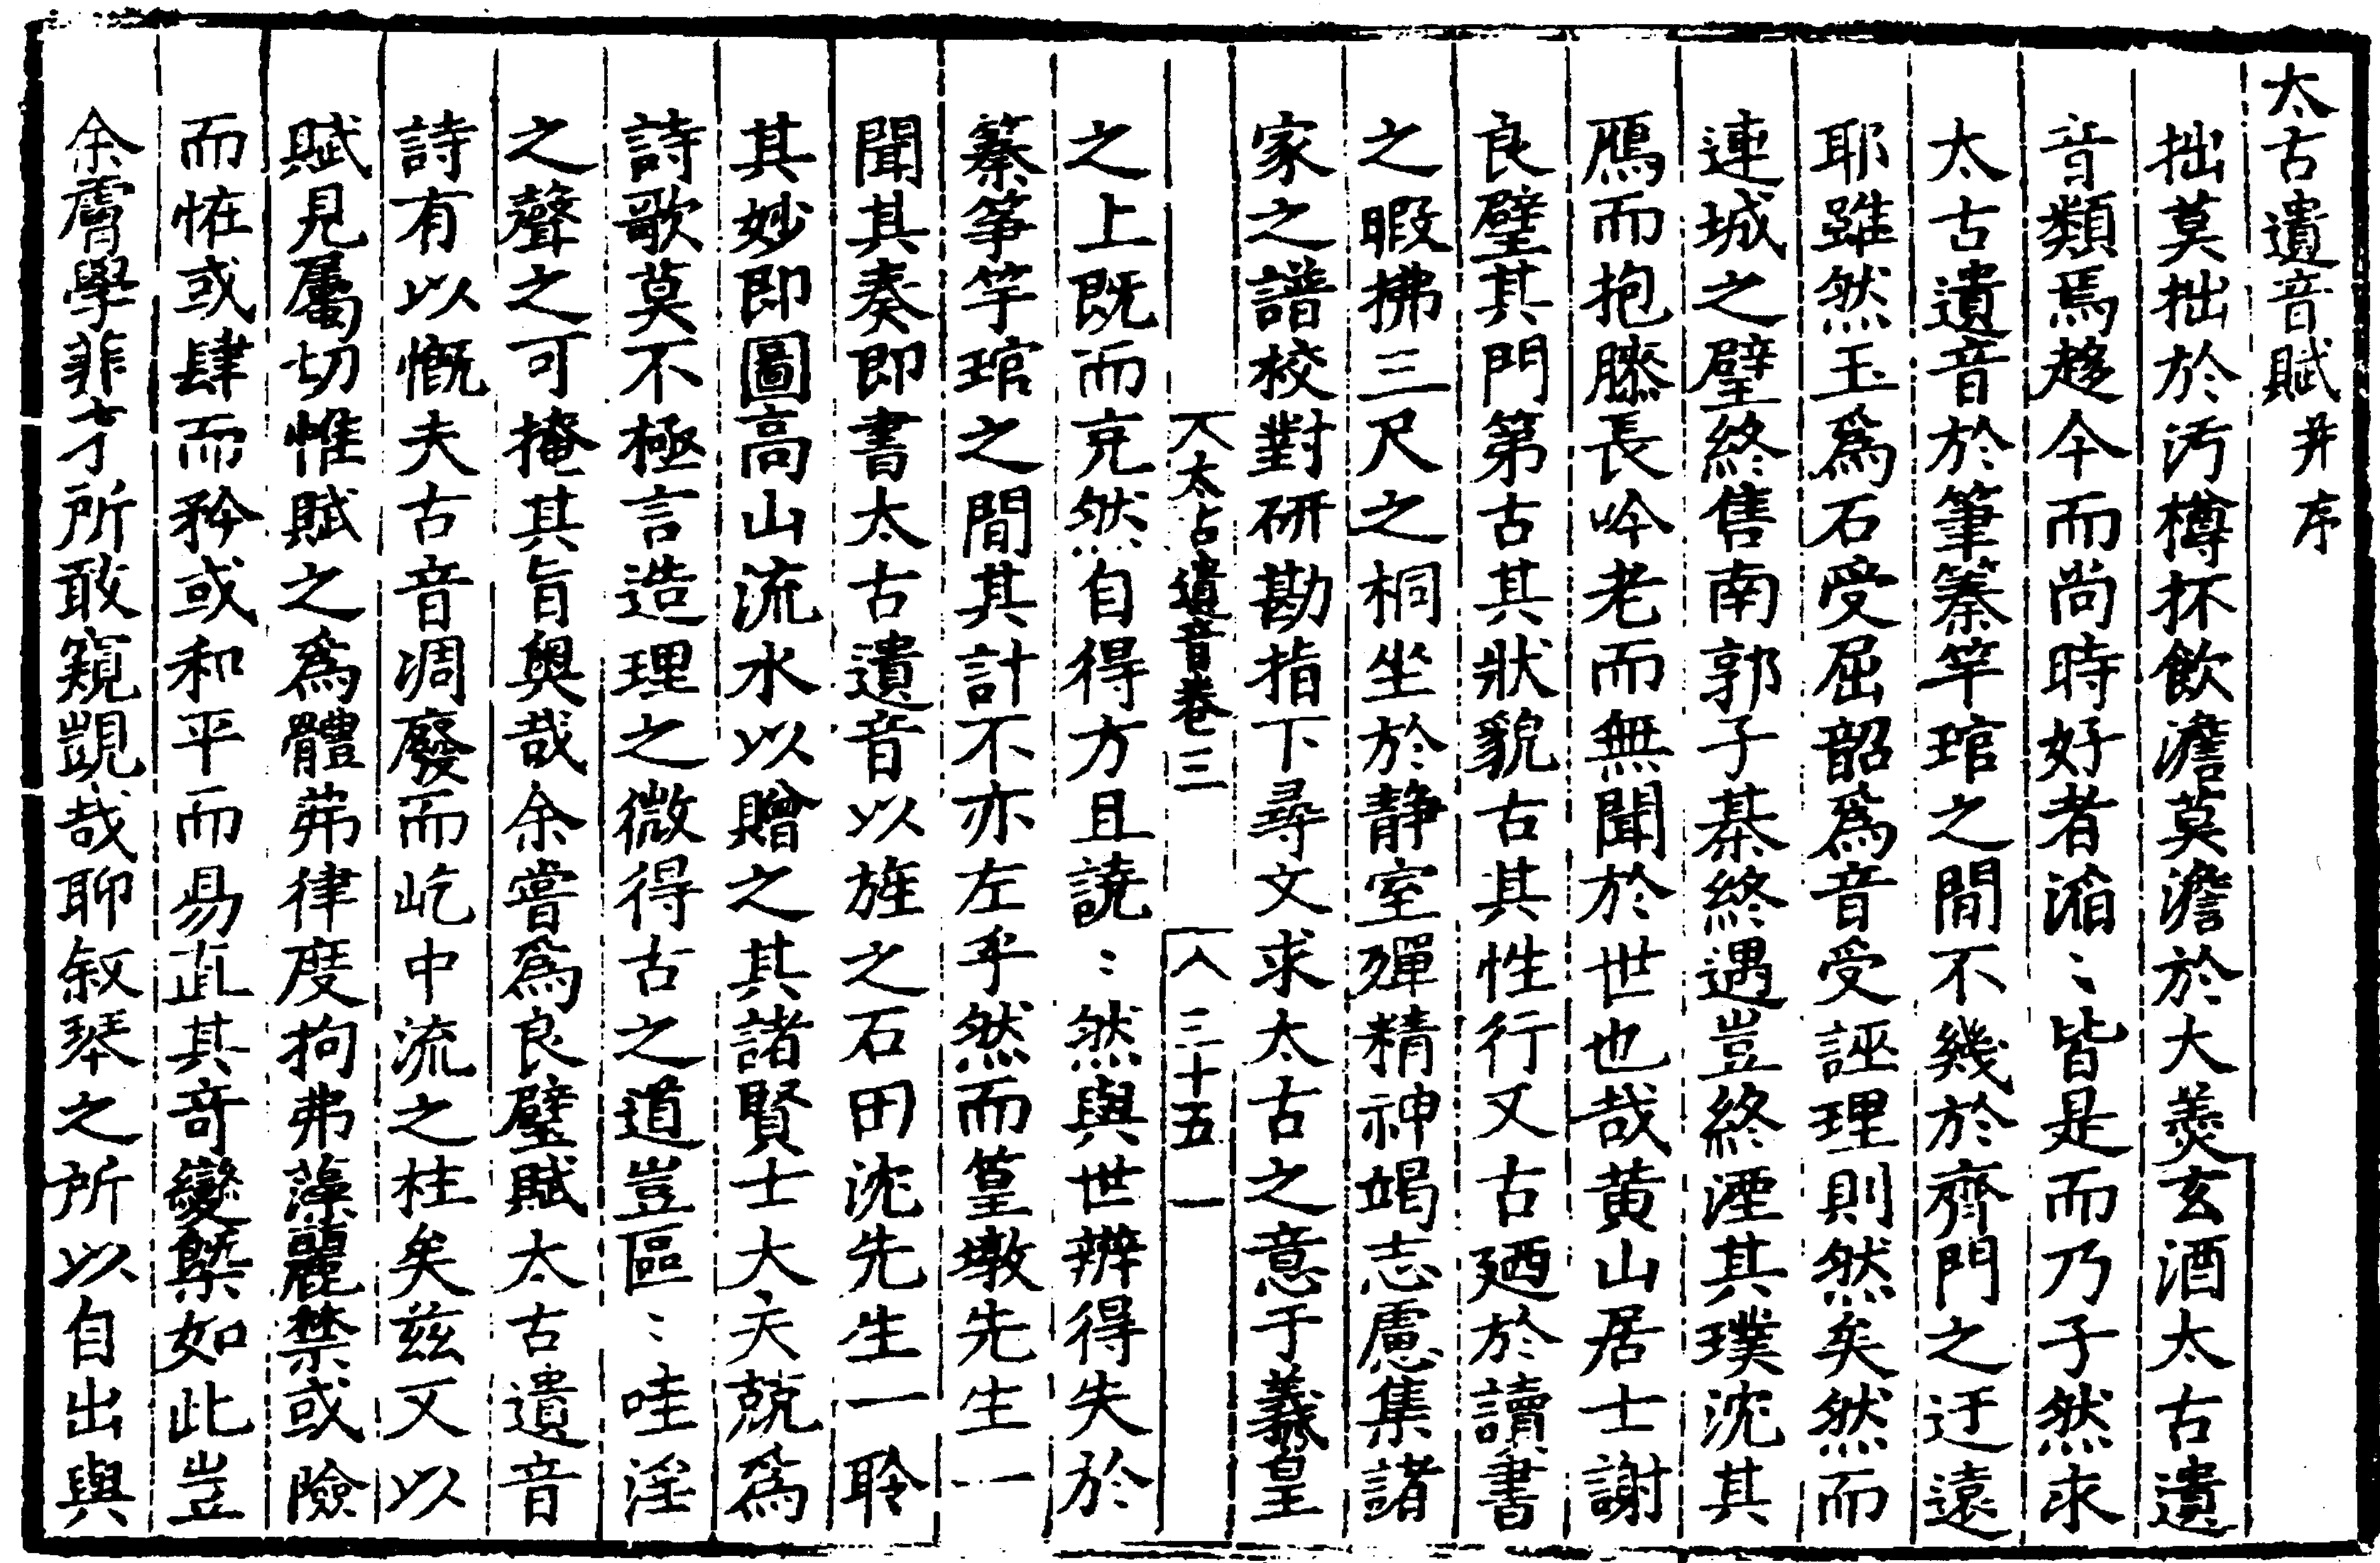 太古遺音賦并序
拙莫拙於汚樽抔飲澹莫澹於大羮玄酒太古遺
音類焉趍今而尚時好者滔〻皆是而乃子然求
太古遺音於筆䈜竽琯之閒不幾於齊門之迂遠
耶雖然玉爲石受屈韶爲音受誣理則然矣然而
連城之璧終售南郭子綦終遇豈終湮其璞沈其
鴈而抱膝長吟老而無聞於世也哉黄山居士謝
良璧其門第古其狀貌古其性行又古廼於讀書
之暇拂三尺之桐坐於静室殫精神竭志慮集諸
家之譜校對研勘指下尋文求太古之意于羲皇
太古遺音卷三 三十五
之上既而充然自得方且譊〻然與世辨得失於
䈜筝竽琯之閒其計不亦左乎然而篁墩先生一
聞其奏即書太古遺音以旌之石田沈先生一聆
其妙即圖高山流水以贈之其諸賢士大夫兢爲
詩歌莫不極言造理之微得古之道豈區〻哇淫
之聲之可掩其旨奥哉余嘗爲良璧賦太古遺音
詩有以慨夫古音凋廢而屹中流之柱矣兹又以
賦見屬切惟賦之爲體茀律度拘弗藻麗禁或險
而恠或肆而矜或和平而易直其奇變槩如此豈
余膚學菲才所敢窺覬哉聊叙琴之所以自出與